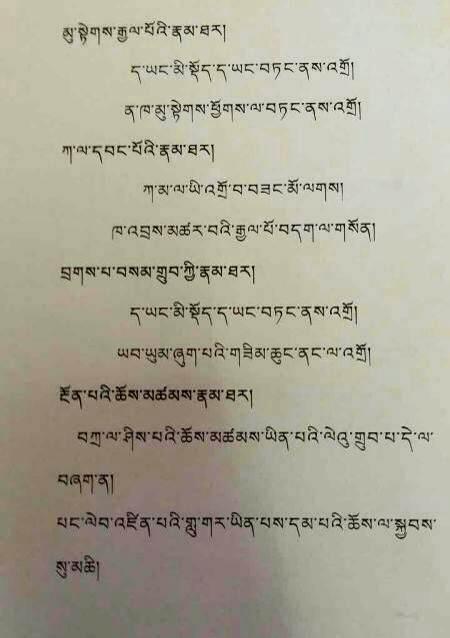 མུ་སྟེགས་རྒྱལ་པོའི་རྣམ་ཐར།
ད་ཡང་མི་སྡོད་ད་ཡང་བཏང་ནས་འགྲོ།
ན་ཁ་མུ་སྟེགས་ཕྱོགས་ལ་བཏང་ནས་འགྲོ།
ཀ་ལ་དབང་པོའི་རྣམ་ཐར།
ཀ་མ་ལ་ཡི་འགྲོ་བ་བཟང་མོ་ལགས།
ཁ་འབྲས་མཚར་བའི་རྒྱལ་པོ་བདག་ལ་གསོན།
བྲགས་པ་བསམ་གྲུབ་ཀྱི་རྣམ་ཐར།
ད་ཡང་མི་སྡོད་ད་ཡང་བཏང་ནས་འགྲོ།
ཡབ་ཡུམ་ཞུག་པའི་གཟིམ་ཆུང་ནང་ལ་འགྲོ།
རྔོན་པའི་ཆོས་མཚམས་རྣམ་ཐར།
བཀྲ་ལ་ཤིས་པའི་ཆོས་མཚམས་ཡིན་པའི་ལེའུ་གྲུབ་པ་དེ་ལ་
བཞག་ན།
པང་ལེབ་འཛིན་པའི་གླུ་གར་ཡིན་པས་དམ་པའི་ཆོས་ལ་སྐྱབས་
སུ་མཆི།